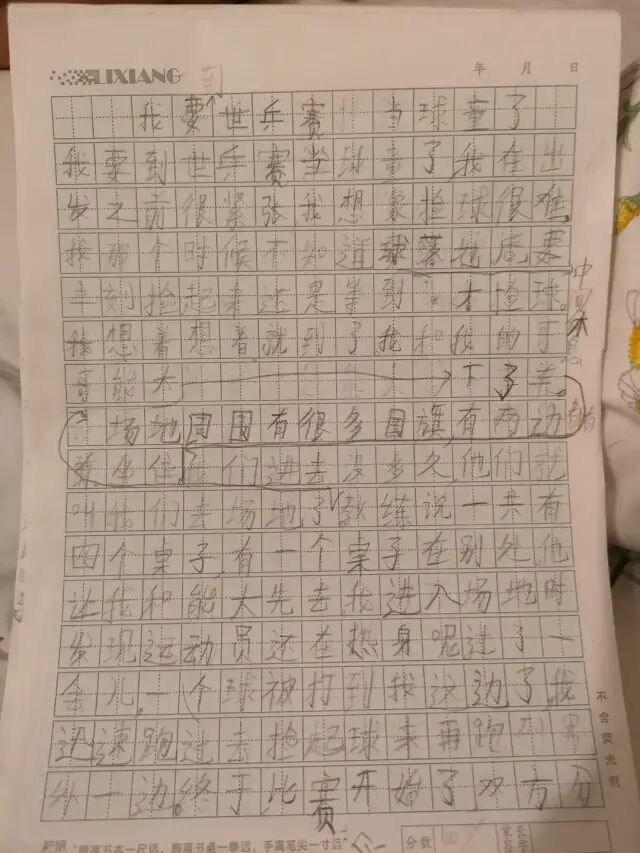 LIXIANG 到
年 月 日
我要世乒赛当球童了
我要到世乒赛当球童了,我在出
发之前很紧张我想象捡球很难
我那个时候不知道球落地后要
立刻捡起来还是等到 才捡球。
我想着想着就到了我和我的手
冲 休息
能大 下了车。
场地周围有很多国旗,有两边
坐住 们进去没多久,他们就
叫我们去场地了教练说一共有
四个桌子,有一个桌子在别处他
让我和能大先去我进入场地时
发现运动员还在热身呢过了一
会儿,一个球被打到我这边了,我
迅速跑过去捡起球来再跑到界
外一边。终于比赛开始了双方分
不含荧光剂
"眼离书本一尺远,胸离书桌一拳远,手离笔尖一寸远"
分数
家长
签字